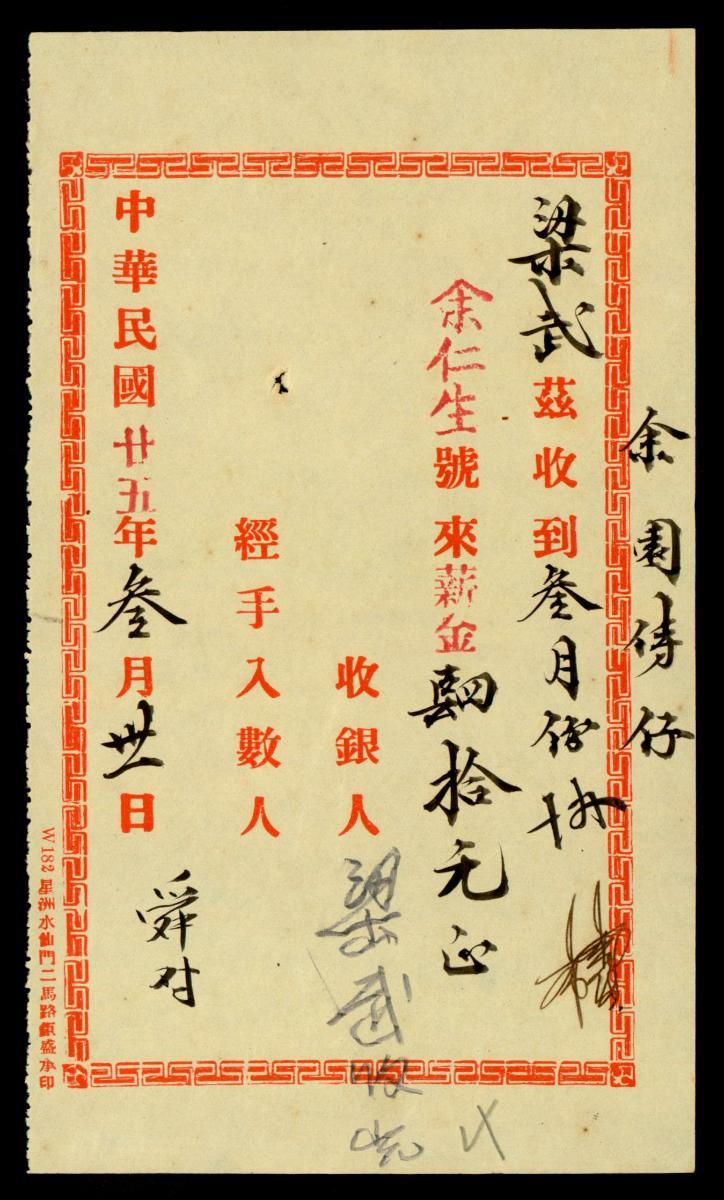 余園侍仔
梁武茲收到叁月份
余仁生號來薪金肆拾元正
收銀人梁武收
經手入數人
中華民國廿五年叁月卅一日
舜付
W182 星洲水仙門二馬路順盛承印